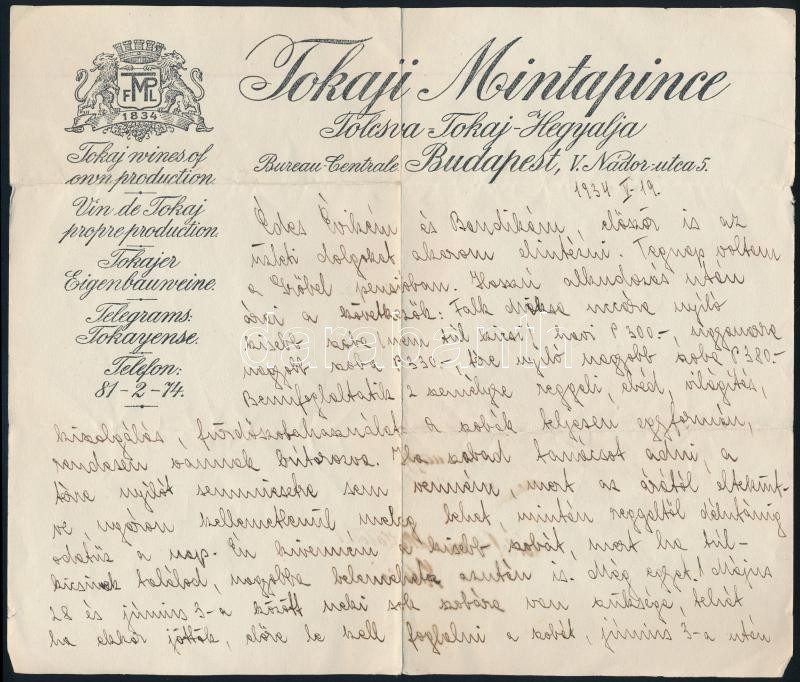 Tokaji Mintapince
Tolcsva-Tokaj-Hegyalja
Bureau-Centrale Budapest, V. Nádor-utca 5.
FMPL
1834
Tokaj wines of
own production.
Vin de Tokaj
propre production.
Tokajer
Eigenbauweine.
Telegrams:
Tokayense.
Telefon:
81-2-74.
1934 V-19.
Édes Évikém és Bandikám, először is az
üzleti dolgokat akarom elintézni. Tegnap voltam
a Gröbel penzióban. Hosszú alkudozás után
árai a következők: Falk Miksa uccára nyíló
kisebb szoba (nem túl kicsi) havi P 300.-, ugyanarra
nagyobb szoba P 330.-, térre nyíló nagyobb szoba P 380.-
Bennfoglaltatik 2 személyre reggeli, ebéd, világítás,
kiszolgálás, fürdőszobahasználat. A szobák teljesen egyformán,
rendesen vannak bútorozva. Ha szabad tanácsot adni, a
térre nyílót semmiesetre sem venném, mert az árától eltekint-
ve, nyáron kellemetlenül meleg lehet, mintén reggeltől délutánig
odatűz a nap. Én kivenném a kisebb szobát, mert ha túl-
kicsinek találod, nagyobba belemehetsz azután is. Még egyet! Május
28 és június 3-a között neki sok szobára van szüksége, tehát
ha akkor jöttök, előre le kell foglalni a szobát, június 3-a után
darabanth